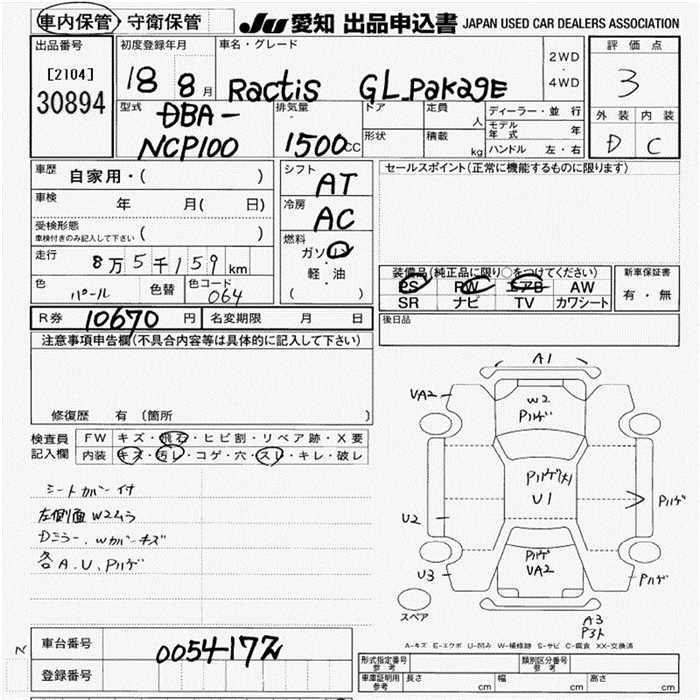 車内保管・守衛保管
JU 愛知 出品申込書 JAPAN USED CAR DEALERS ASSOCIATION
出品番号
[2104]
30894
初度登録年月
18 8月
車名・グレード
Ractis GL_PakagE
2WD
・
4WD
評価点
3
外装 内装
D C
型式
DBA-
NCP100
排気量
1500CC
ドア
定員
人
形状
積載
kg
ディーラー・並行
モデル年式 年
ハンドル 左・右
車歴
自家用・( )
車検 年 月( 日)
受検形態
車検付きのみ記入して下さい ( )
走行 8万5千159km
色 パール
色替
色コード 064
シフト
AT
冷房
AC
燃料
ガソリン
・
軽・油
( )
セールスポイント(正常に機能するものに限り)
装備品(純正品に限り○をつけてください)
PS PW エアB AW
SR ナビ TV カワシート
新車保証書
有・無
R券 10670円
名変期限 月 日
後日品
注意事項申告欄(不具合内容等は具体的に記入して下さい)
修復歴 有(箇所 )
検査員
記入欄
FW キズ・飛石・ヒビ割・リペア跡・X要
内装 キズ・汚レ・コゲ・穴・スレ・キレ・破レ
シートカバー付
左側面W2ムラ
Dミラー、Wカバーキズ
各A.U.Pハゲ
A1
VA2
W2
Pハゲ
Pハゲ(大)
U1
U2
Pハゲ
Pハゲ
VA2
U3
Pハゲ
スペア
A3
P3ト
A-キズ E-エクボ U-凹み W-補修跡 S-サビ C-腐食 XX-交換済
車台番号
0054172
登録番号
形式指定番号
参考
類別区分番号
参考
車庫証明用
参考
長さ cm
幅 cm
高さ cm